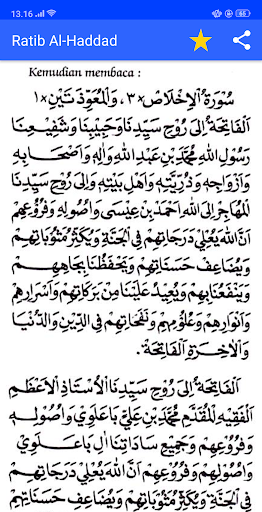 13.16
Ratib Al-Haddad
Kemudian membaca :
سُوْرَةُ الْإِخْلَاصِ ×٣، وَالْمُعَوِّذَتَيْنِ ×١
اَلْفَاتِحَةُ إِلَى رُوْحِ سَيِّدِنَا وَحَبِيْبِنَا وَشَفِيْعِنَا
رَسُوْلِ اللهِ مُحَمَّدِ بْنِ عَبْدِ اللهِ وَاٰلِهِ وَاَصْحَابِهِ
وَاَزْوَاجِهِ وَذُرِّيَّتِهِ وَاَهْلِ بَيْتِهِ وَاِلَى رُوْحِ سَيِّدِنَا
الْمُهَاجِرِ اِلَى اللهِ اَحْمَدَ بْنِ عِيْسَى وَاُصُوْلِهِ وَفُرُوْعِهِمْ
اَنَّ اللهَ يُعْلِي دَرَجَاتِهِمْ فِي الْجَنَّةِ وَيُكَثِّرُ مَثُوْبَاتِهِمْ
وَيُضَاعِفُ حَسَنَاتِهِمْ وَيَحْفَظُنَا بِجَاهِهِمْ
وَيَنْفَعُنَا بِهِمْ وَيُعِيْدُ عَلَيْنَا مِنْ بَرَكَاتِهِمْ وَاَسْرَارِهِمْ
وَاَنْوَارِهِمْ وَعُلُوْمِهِمْ وَنَفَحَاتِهِمْ فِي الدِّيْنِ وَالدُّنْيَا
وَالْاٰخِرَةِ اَلْفَاتِحَةُ:
اَلْفَاتِحَةُ إِلَى رُوْحِ سَيِّدِنَا الْاُسْتَاذِ الْاَعْظَمِ
اَلْفَقِيْهِ الْمُقَدَّمِ مُحَمَّدِ بْنِ عَلِيٍّ بَاعَلَوِيْ وَاُصُوْلِهِ
وَفُرُوْعِهِمْ وَجَمِيْعِ سَادَاتِنَا اٰلِ بَاعَلَوِيْ
وَاُصُوْلِهِمْ وَفُرُوْعِهِمْ اَنَّ اللهَ يُعْلِي دَرَجَاتِهِمْ
فِي الْجَنَّةِ وَيُكَثِّرُ مَثُوْبَاتِهِمْ وَيُضَاعِفُ حَسَنَاتِهِمْ